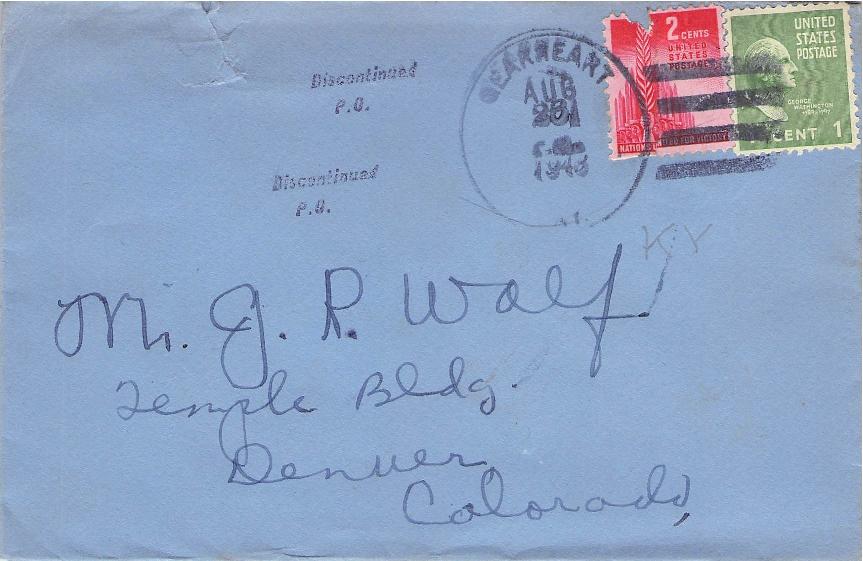 Discontinued
P.O.
Discontinued
P.O.
GEARHEART
AUG
1943
2 CENTS
UNITED
STATES
POSTAGE
NATIONS UNITED FOR VICTORY
UNITED
STATES
POSTAGE
GEORGE
WASHINGTON
CENT 1
KY
Mr. J. R. Wolf
Temple Bldg.
Denver
Colorado,